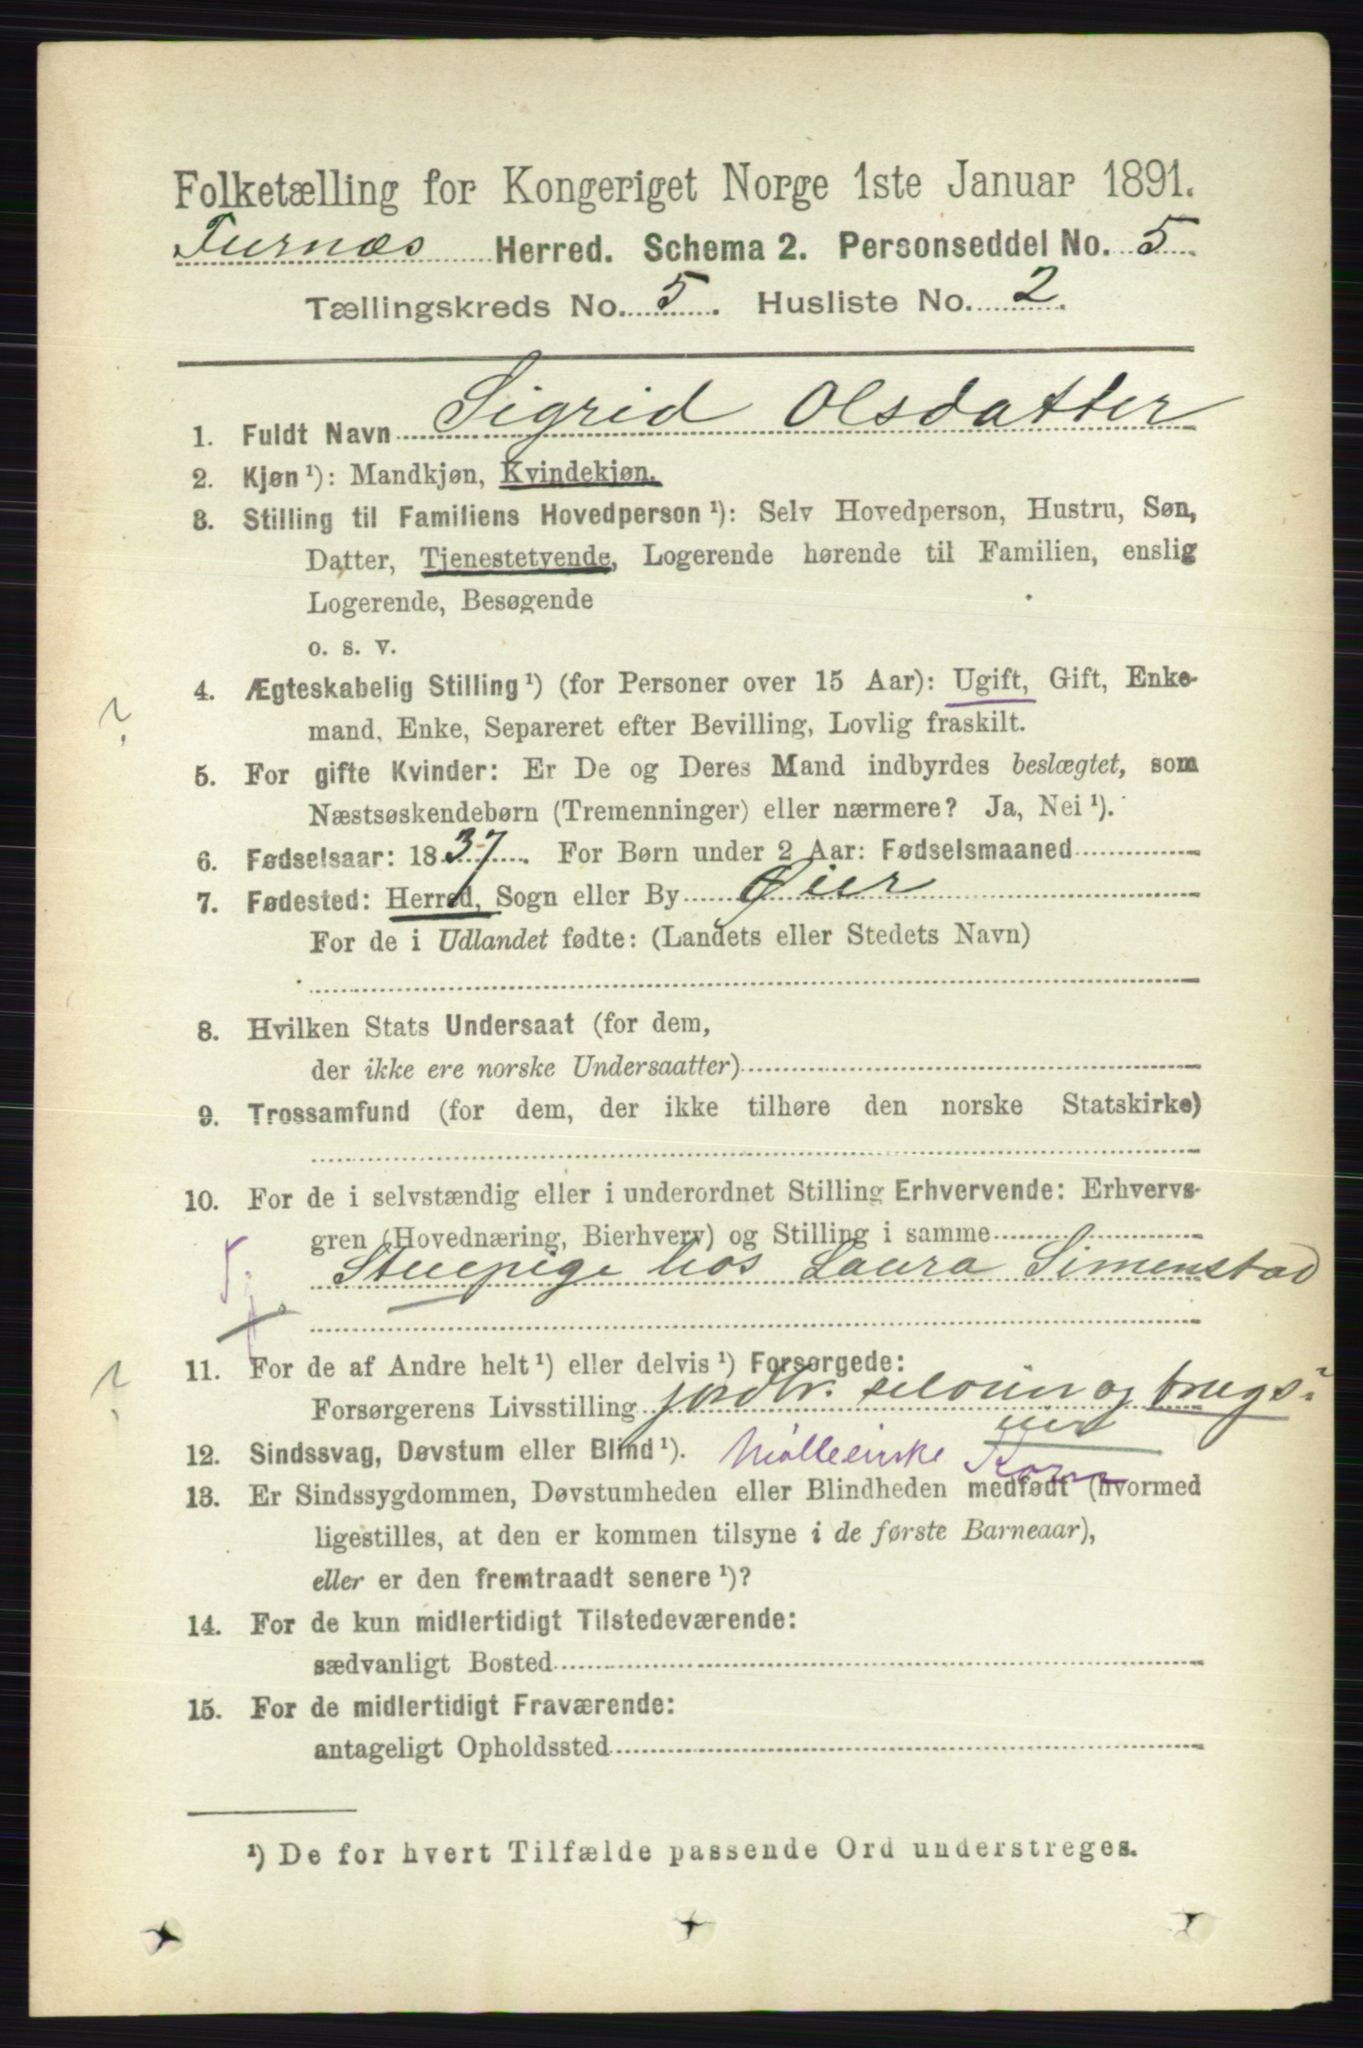 Folketælling for Kongeriget Norge 1ste Januar 1891.
Furnæs Herred. Schema 2. Personseddel No. 5
Tællingskreds No. 5. Husliste No. 2.
1. Fuldt Navn Sigrid Olsdatter
2. Kjøn ¹): Mandkjøn, Kvindekjøn.
3. Stilling til Familiens Hovedperson ¹): Selv Hovedperson, Hustru, Søn,
Datter, Tjenestetyende, Logerende hørende til Familien, enslig
Logerende, Besøgende
o. s. v.
4. Ægteskabelig Stilling ¹) (for Personer over 15 Aar): Ugift, Gift, Enke-
?
mand, Enke, Separeret efter Bevilling, Lovlig fraskilt.
5. For gifte Kvinder: Er De og Deres Mand indbyrdes beslægtet, som
Næstsøskendebørn (Tremenninger) eller nærmere? Ja, Nei ¹).
6. Fødselsaar: 1837. For Børn under 2 Aar: Fødselsmaaned
7. Fødested: Herred, Sogn eller By Øier
For de i Udlandet fødte: (Landets eller Stedets Navn)
8. Hvilken Stats Undersaat (for dem,
der ikke ere norske Undersaatter)
9. Trossamfund (for dem, der ikke tilhøre den norske Statskirke)
10. For de i selvstændig eller i underordnet Stilling Erhvervende: Erhvervs-
gren (Hovednæring, Bierhverv) og Stilling i samme
Stuepige hos Laura Simenstad
11. For de af Andre helt ¹) eller delvis ¹) Forsørgede:
?
Forsørgerens Livsstilling jordbr. seloier og brugs-
eier
12. Sindssvag, Døvstum eller Blind ¹). Korn
13. Er Sindssygdommen, Døvstumheden eller Blindheden medfødt (hvormed
ligestilles, at den er kommen tilsyne i de første Barneaar),
eller er den fremtraadt senere ¹)?
14. For de kun midlertidigt Tilstedeværende:
sædvanligt Bosted
15. For de midlertidigt Fraværende:
antageligt Opholdssted
¹) De for hvert Tilfælde passende Ord understreges.